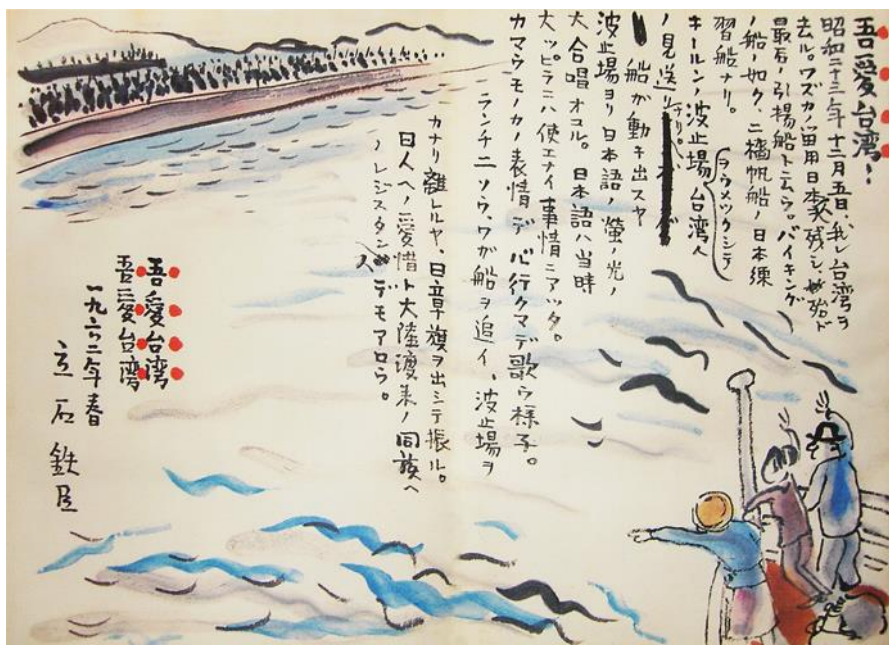 吾愛台湾!
昭和二十三年十二月五日、我レ台湾ヲ
去ル。ワズカノ留用日本人残シ、殆ド
最后ノ引揚船ト云ウ。バイキング
ノ船ノ如ク、二檣帆船ノ日本練
習船ナリ。
キールンノ波止場ヲウメツクシテ台湾人
ノ見送リナリ。
船が動キ出スヤ
波止場ヨリ日本語ノ蛍ノ光ノ
大合唱オコル。日本語ハ当時
大ッピラニハ使エナイ事情ニアッタ。
カマウモノカノ表情デ心行クマデ歌ウ様子。
ランチニソウ、ワガ船ヲ追イ、波止場ヲ
カナリ離レルヤ、日章旗ヲ出シテ振ル。
日人ヘノ愛惜ト大陸渡来ノ同族ヘ
ノレジスタンスデモアロウ。
吾愛台湾
吾愛台湾
一九六二年春
立石鉄臣